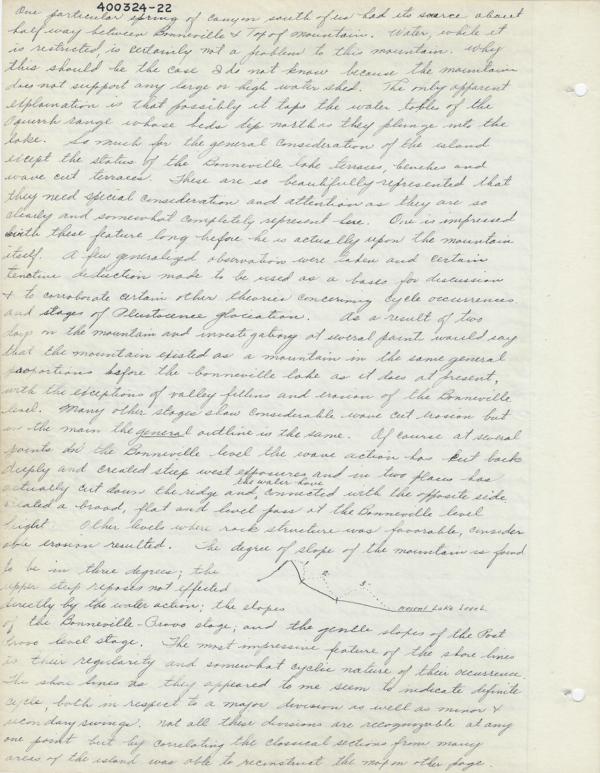 400324-22
One particular spring of canyon south of us had its source about
half way between Bonneville & Top of mountain. Water, while it
is restricted, is certainly not a problem to this mountain. Why
this should be the case I do not know because the mountain
does not support any large or high water shed. The only apparent
explaination is that possibly it taps the water tables of the
Oquirrh range whose beds dip north as they plunge into the
lake. So much for the general consideration of the island
except the status of the Bonneville lake terraces, benches and
wave cut terraces. These are so beautifully represented that
they need special consideration and attention as they are so
clearly and somewhat completely represent here. One is impressed
with these feature long before he is actually upon the mountain
itself. A few generalized observation were taken and certain
tenative deduction made to be used as a bases for discussion
& to corroborate certain other theories concerning cycle occurrences
and stages of Pleistocene glaciation. As a result of two
days on the mountain and investigating at several points would say
that the mountain existed as a mountain in the same general
proportions before the bonneville lake as it does at present,
with the exceptions of valley filling and erosion of the Bonneville
level. Many other stages show considerable wave cut erosion but
in the main the general outline is the same. Of course at several
points on the Bonneville level the wave action has cut back
deeply and created steep west exposures and in two places has
actually cut down the ridge and the water have connected with the opposite side
created a broad, flat and level pass at the Bonneville level
hight. Other levels where rock structure was favorable, consider
able erosion resulted. The degree of slope of the mountain is found
to be in three degrees; the
upper steep reposes not effected
directly by the water action; the slopes
1 2 3
present Lake Level
of the Bonneville-Provo stage; and the gentle slopes of the Post
Provo level stage. The most impressive feature of the shore lines
is their regularity and somewhat cyclic nature of their occurrence.
The shore lines as they appeared to me seem to indicate definite
cycle, both in respect to a major division as well as minor &
secondary swings. not all these divisions are recognizable at any
one point but by correlating the classical sections from many
areas of the island was able to reconstruct the map on other page.